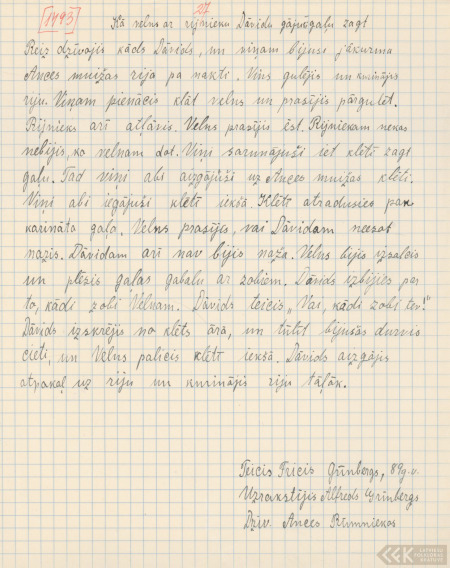 27
[1493]
Kā velns ar rijnieku Dāvidu gājuši gaļu zagt
Reiz dzīvojis kāds Dāvids, un viņam bijusi jākurina
Ances muižas rija pa nakti. Viņs gulējis un kurinājis
riju. Viņam pienācis klāt velns un prasījis pārgulēt.
Rijnieks arī atļāvis. Velns prasījis ēst. Rijniekam nekas
nebijis, ko velnam dot. Viņi sarunājuši iet klētī zagt
gaļu. Tad viņi abi aizgājuši uz Ances muižas klēti.
Viņi abi iegājuši klētī iekšā. Klētī atradusies pak
karināta gaļa. Velns prasījis, vai Dāvidam neesot
nazis. Dāvidam arī nav bijis naža. Velns bijis izsalcis
un plēsis gaļas gabalu ar zobiem. Dāvids izbijies par
to, kādi zobi Velnam. Dāvids teicis „Vai, kādi zobi tev!"
Dāvids izskrējis no klēts ārā, un tūlīt bijušās durvis
cieti, un Velns palicis klētī iekšā. Dāvids aizgājis
atpakaļ uz riju un kurinājis riju tāļāk.
Teicis Fricis Grīnbergs, 89 g.v.
Uzrakstījis Alfreds Grīnbergs
Dzīv. Ances Rumniekos
LATVIEŠU
FOLKLORAS
KRĀTUVE